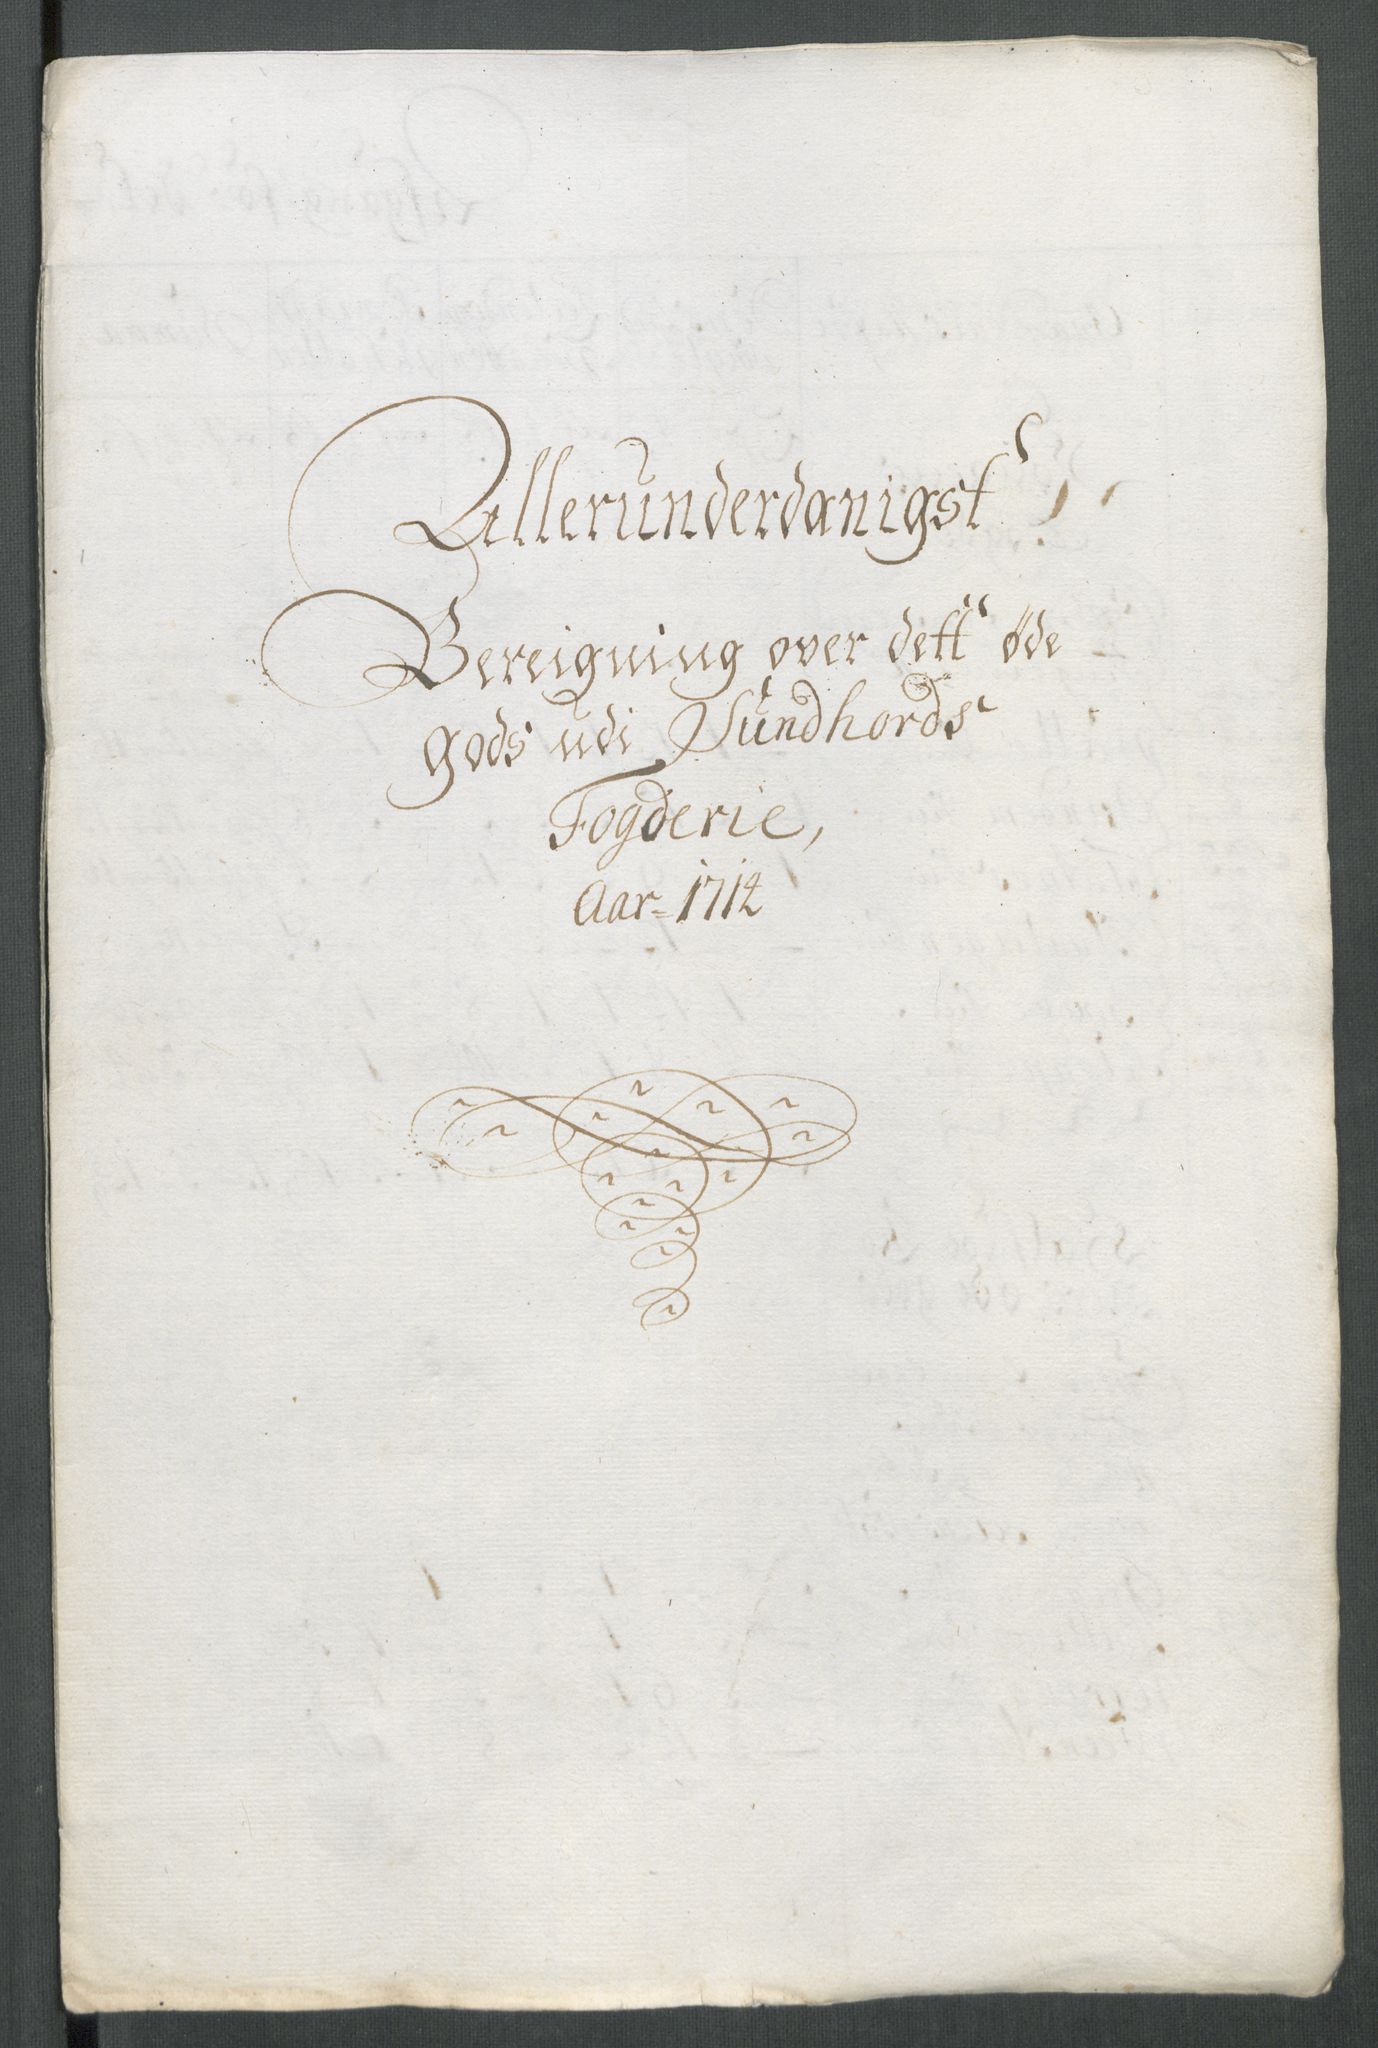 Allerunderdanigst
Bereigning over dett øde
gods udi Sundhords
Fogderie,
Aar 1714